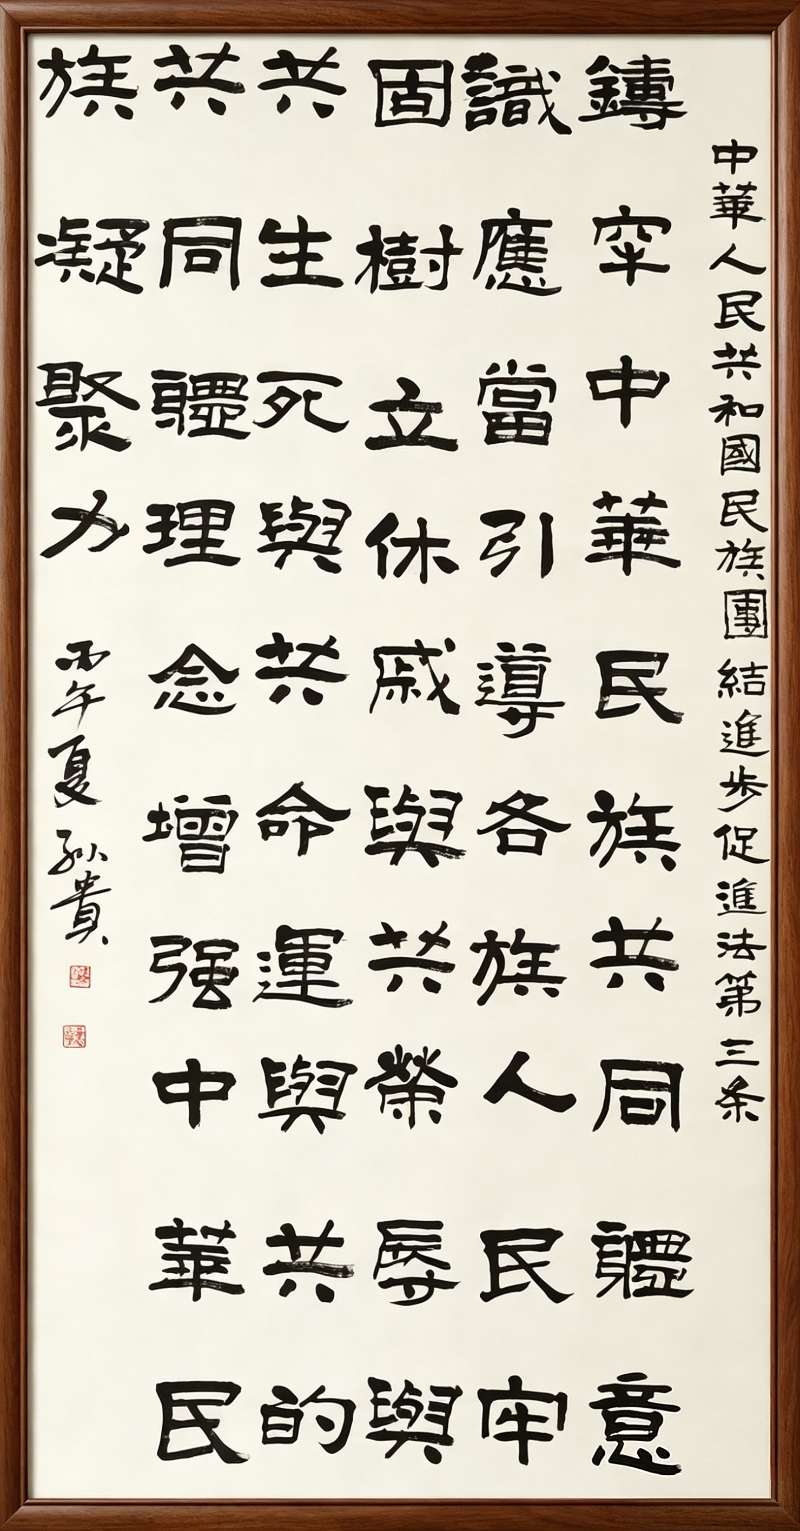 中華人民共和國民族團結進步促進法第三条
鑄牢中華民族共同體意
識應當引導各族人民牢
固樹立休戚與共榮辱與
共生死與共命運與共的
共同體理念增强中華民
族凝聚力
丙午夏孙貴